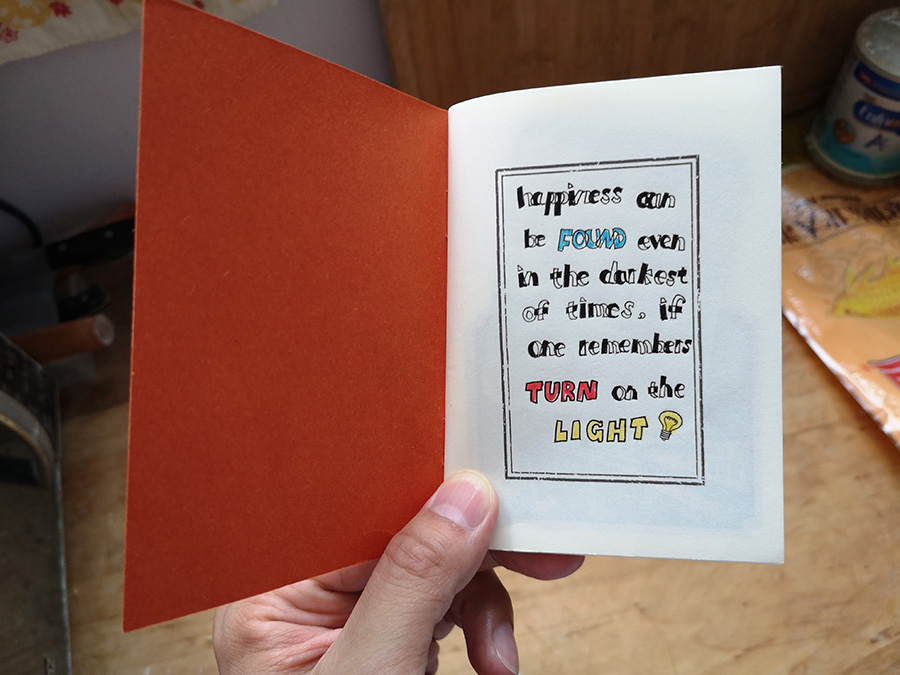 happiness can
be FOUND even
in the darkest
of times, if
one remembers
TURN on the
LIGHT